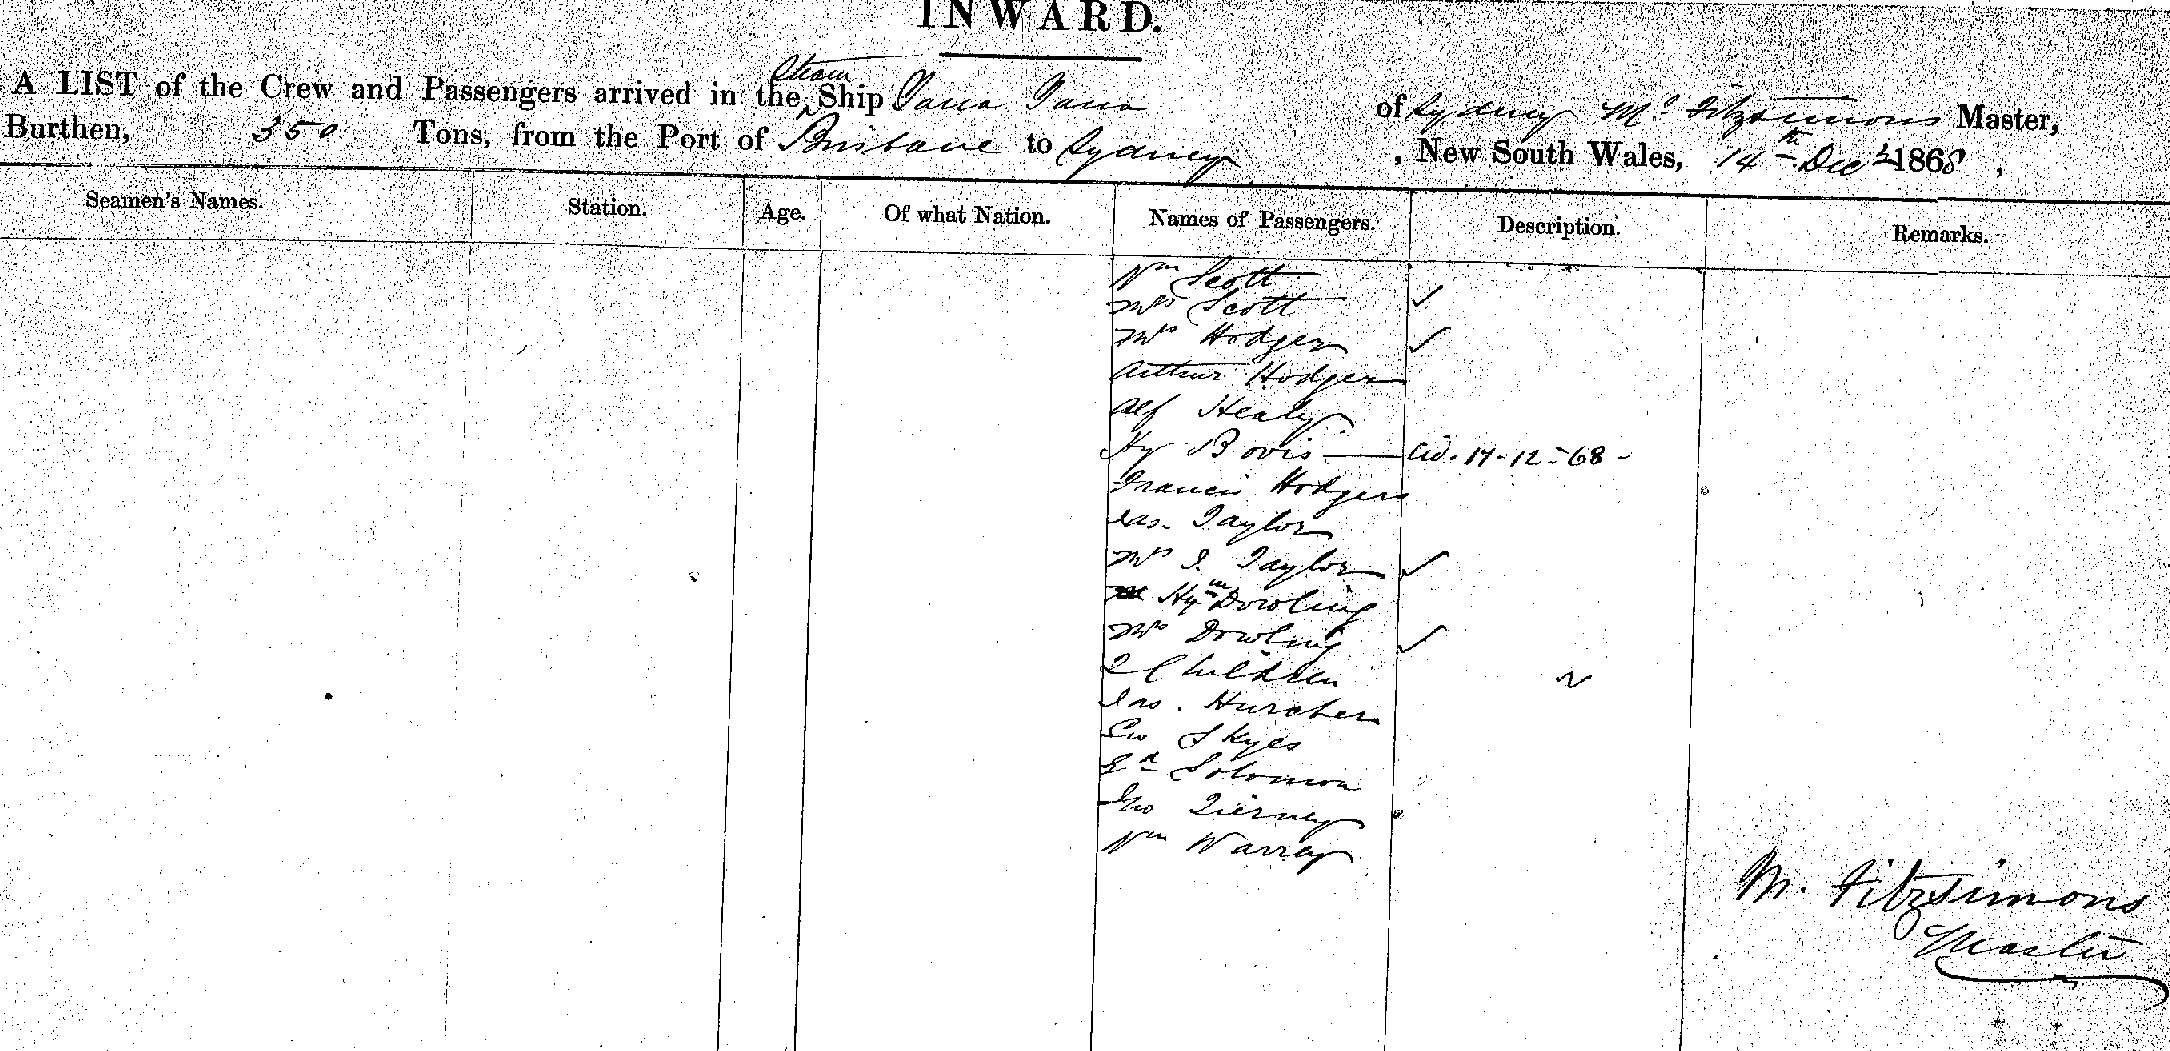 INWARD.
A LIST of the Crew and Passengers arrived in the Steam Ship Yarra Yarra of Sydney Mc Fitzsimmons Master,
Burthen, 350 Tons, from the Port of Brisbane to Sydney, New South Wales, 14th Decr 1868,
Seamen's Names. Station. Age. Of what Nation. Names of Passengers. Description. Remarks.
Wm Scott
Mrs Scott ✓
Mrs Hodgen ✓
Arthur Hodgen
Alf Healy
Hy Bovis — 14-12-68-
Francis Hodgers
Jas. Taylor
Mrs J. Taylor ✓
Dowling
Mrs Dowling ✓
2 Children 2
Jas.
Skyes
Ed Solomon
Jno Tierney
Wm Warray
M. Fitzsimons
Master